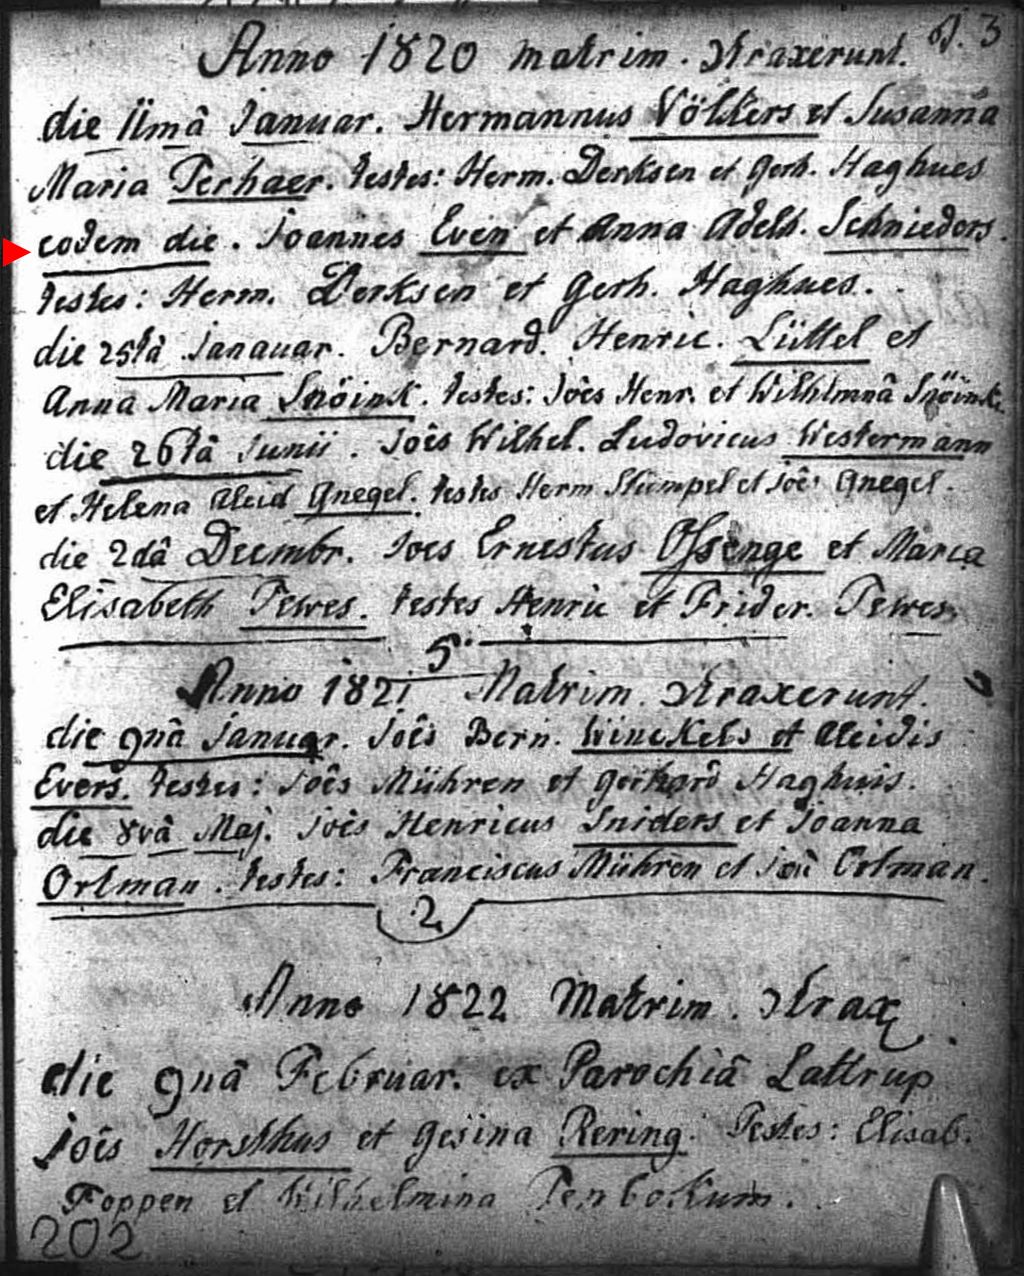 p. 3
Anno 1820 matrim. Xtraxerunt.
die 11mâ Januar. Hermannus Völkers et Susanna
Maria Terhaer. testes: Herm. Derksen et Gerh. Haghues
eodem die. Joannes Even et Anna Adelh. Schnieders.
testes: Herm. Derksen et Gerh. Haghues.
die 25tâ Janauar. Bernard. Henric. Lüttel et
Anna Maria Snöink. testes: Joês Henr. et Wilhlmnâ Snöink.
die 26tâ Junii. Joês Wilhel. Ludovicus Westermann
et Helena Aleid Gnegel. testes Herm Stümpel et Joês Gnegel.
die 2dâ Decmbr. Joes Ernestus Ossenge et Maria
Elisabeth Tewes. testes Henric et Frider. Tewes
5.
Anno 1821 Matrim. Xtraxerunt.
die 9nâ Januar. Joês Bern. Winckels et Aleidis
Evers. testes: Joês Mühren et Gerhard Haghuis.
die 8vâ Maj. Joês Henricus Sniders et Joanna
Ortman. testes: Franciscus Mühren et Ortman.
2
Anno 1822 Matrim. Xtrax
die 9nâ Februar. ex Parochiâ Lattrup
Joês Horsthus et Gesina Rering. Testes: Elisab.
Foppen et Wilhelmina Tenbockum.
202